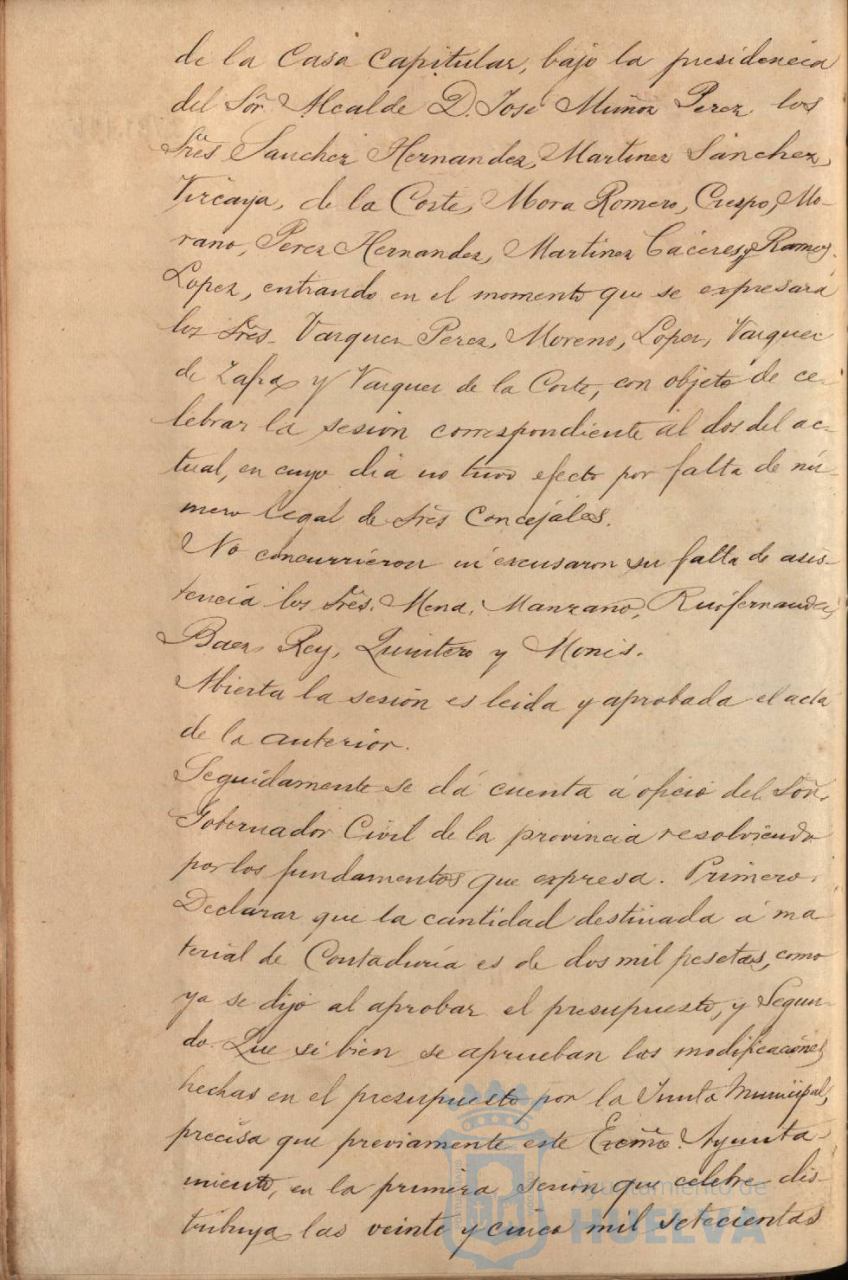 de la Casa Capitular, bajo la presidencia
del Sor. Alcalde D. José Muñoz Perez los
Sres Sanchez Hernandez, Martinez Sánchez,
Vizcaya, de la Corte, Mora Romero, Crespo, Mo-
rano, Perez Hernandez, Martinez Cáceres y Ramos
Lopez, entrando en el momento que se expresará
los Sres. Vazquez Perez, Moreno, Lopez, Vazquez
de Zafra y Vazquez de la Corte, con objeto de ce-
lebrar la sesión correspondiente al dos del ac-
tual, en cuyo dia no tuvo efecto por falta de nú-
mero legal de Sres Concejales.
No concurrieron ni escusaron su falta de asis-
tencia los Sres. Mena, Manzano, Ruifernandez,
Baez, Rey, Quintero y Monis.
Abierta la sesión es leida y aprobada el acta
de la anterior.
Seguidamente se dá cuenta á oficio del Sor.
Gobernador Civil de la provincia resolviendo
por los fundamentos que expresa. Primero.
Declarar que la cantidad destinada á ma
terial de Contaduría es de dos mil pesetas, como
ya se dijo al aprobar el presupuesto, y Segun-
do. Que si bien se aprueban las modificaciones
hechas en el presupuesto por la Junta Municipal,
precisa que previamente este Excmo. Ayunta-
miento, en la primera sesión que celebre dis-
tribuya las veinte y cinco mil setecientas
Ayuntamiento de
HUELVA